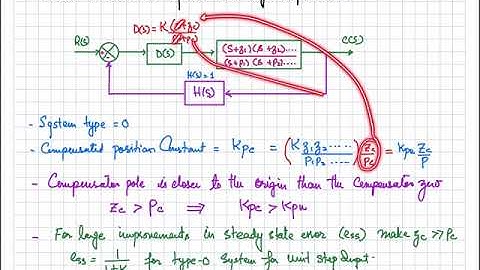 D(s) = K (s+zc)/(s+pc)
R(s) D(s) (s+z1)(s+z2).... / (s+p1)(s+p2).... C(s)
H(s)=1
H(s)
- System type = 0
- Compensated position Constant = Kpc = (K z1 z2 ...... / P1 P2 .....) (Zc / Pc) = Kpu Zc / P
- Compensator pole is closer to the origin than the Compensator zero
Zc > Pc ⇒ Kpc > Kpu
- For large improvements in steady state error (ess) make zc >> Pc
ess = 1 / for type-0 system for unit step input.